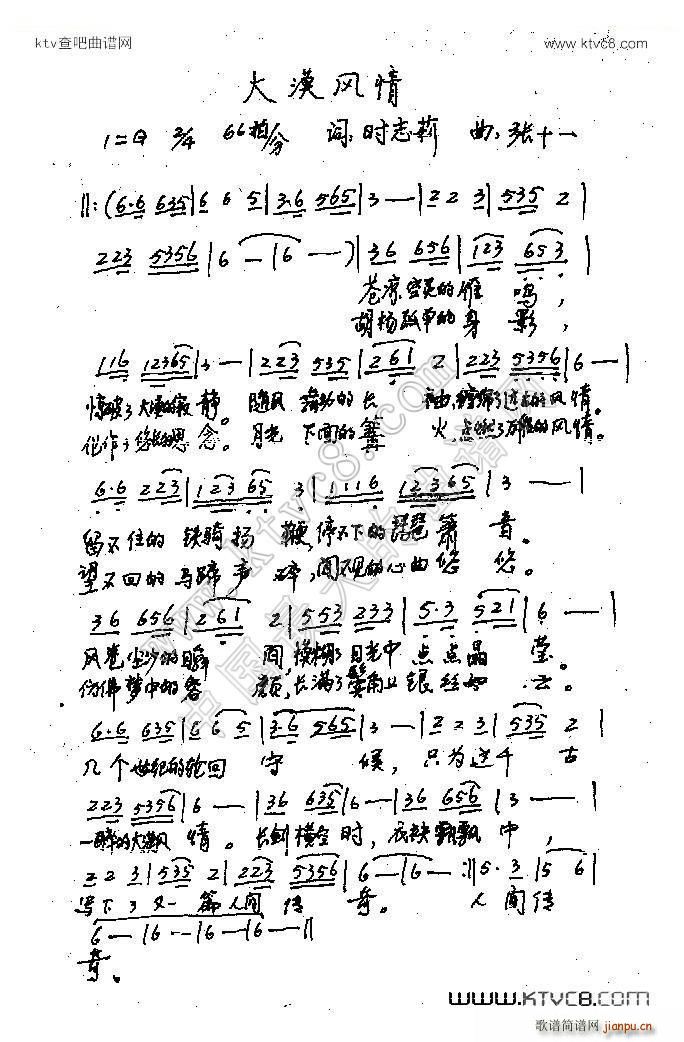 ktv查吧曲谱网 www.ktvc8.com
大漠风情
1=G 2/4 66拍/分 词:时志新 曲:张十一
‖:(6·6 635|6 6 5|3·6 565|3 —|2 2 3|535 2|
223 5356|6 —|6 —)|36 656|123 653|
苍凉 的雁 鸣,
胡杨孤单的身 影,
116 12365|3 —|223 535|261 2|223 5356|6 —|
惊破了大漠的寂 静。随风 舞动的长 袖, 的风情。
化作了 的思 念。月光 下面的篝 火,点燃了 的风情。
6·6 223|12365 3|1116 12365|3 —|
留不住的铁骑扬 鞭,停不下的琵琶箫 音。
望不回的马蹄声 碎, 的心曲悠 悠。
36 656|261 2|553 233|5·3 521|6 —|
风卷尘沙的瞬 间,模糊了月光中点点晶 莹。
仿佛梦中的容 颜,长满了鬓角上银丝如 云。
6·6 635|6 6 5|3·6 565|3 —|2 2 3|535 2|
几个世纪的轮回 守 候,只为这千 古
223 5356|6 —|36 635|6 —|36 656|3 —|
一 的大漠风 情。长剑横空时,衣袂飘飘中,
2 2 3|535 2|223 5356|6 —|6 —:‖5·3|5 6|
写下了又一 篇人间传 奇。 人间传
6 —|6 —|6 —|6 —‖
奇。
www.KTVC8.COM
歌谱简谱网 jianpu.cn
www.ktvc8.com